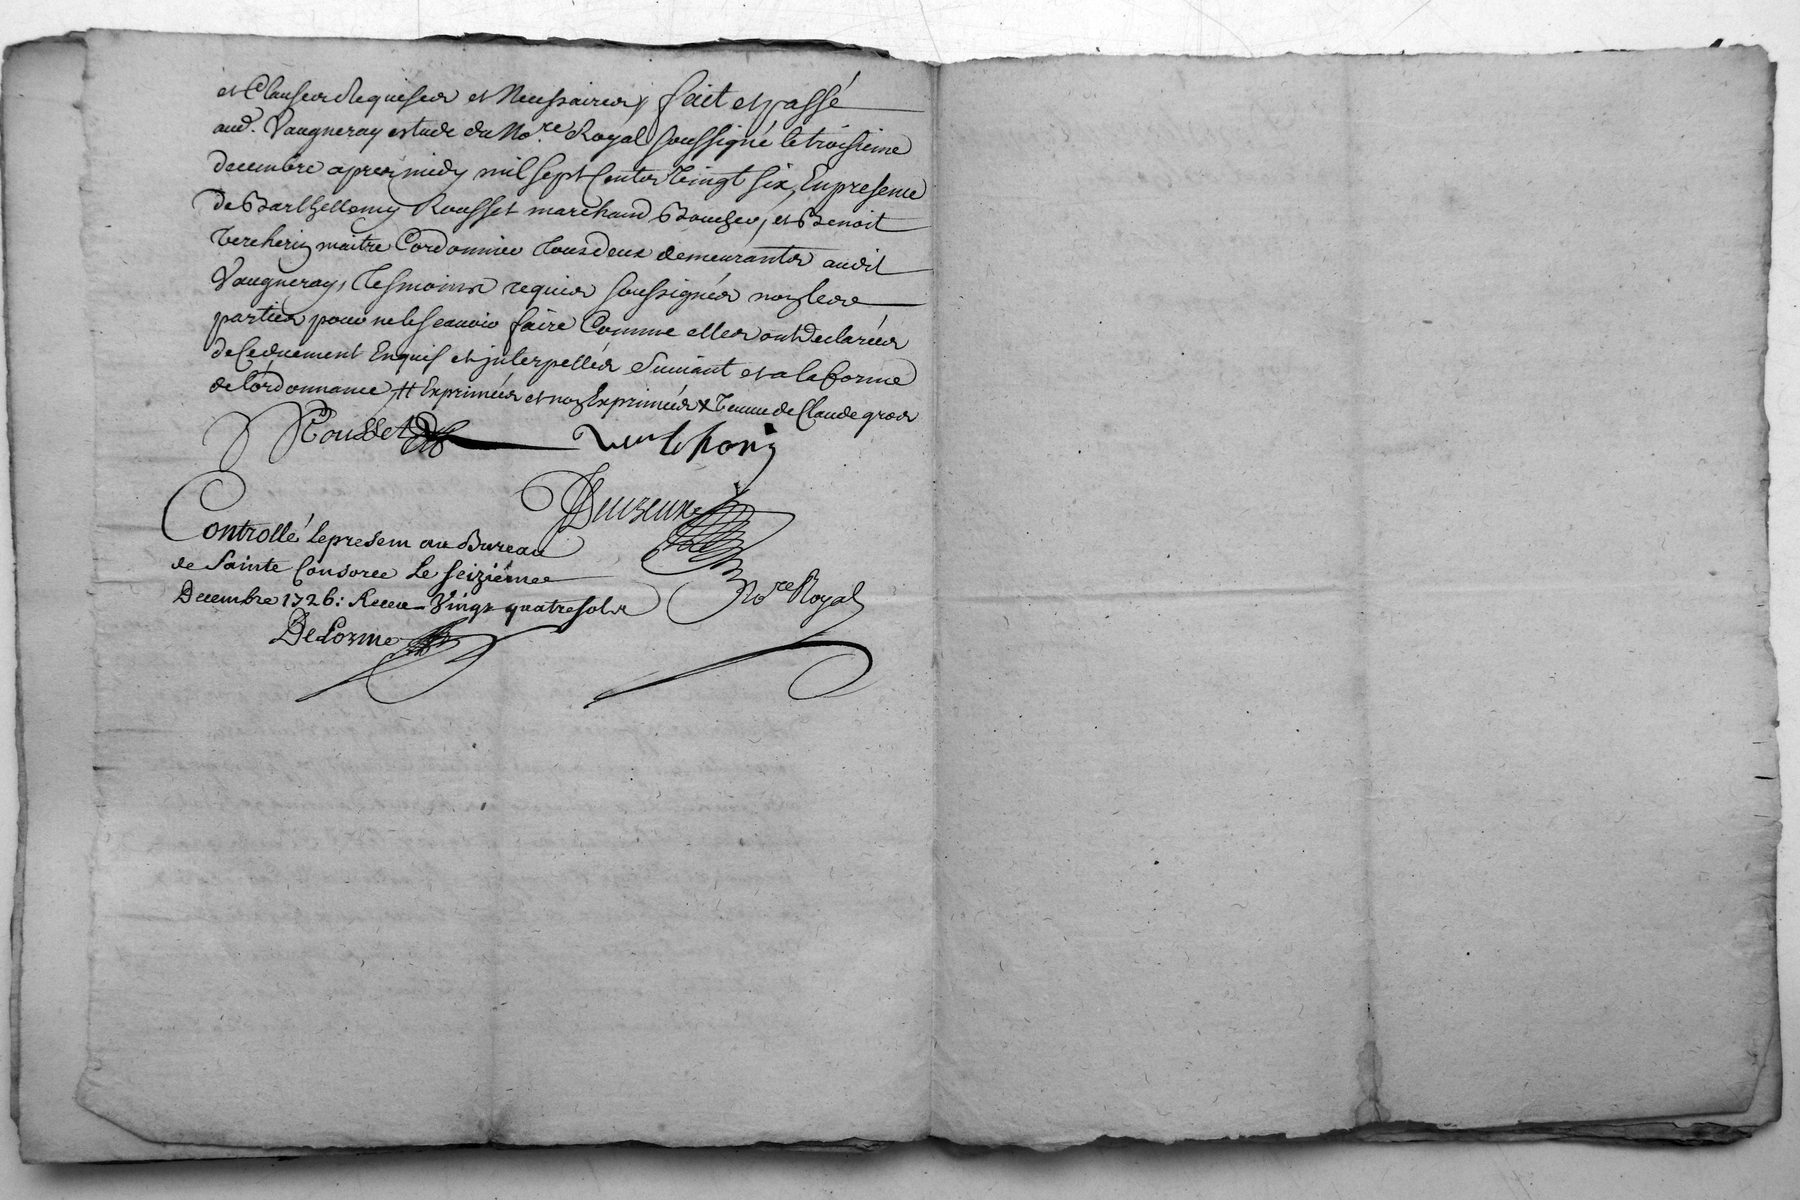 et Clauses Requises et Necessaires, fait et passé
aud. Vaugneray estude du No.re Royal soussigné le troisieme
decembre apres midy mil sept Cents Vingt six, En presence
de Barthellemy Rousset marchand Boucher, et Benoit
Vercherin maitre Cordonnier tous deux demeurants audit
Vaugneray, tesmoins requis soussignés non lesd.
parties pour ne le scauoir faire Comme elles ont declarées
de ce duement Enquis et interpellés Suiuant et a la forme
de l'ordonnance # Exprimées et non Exprimées x Veuue de Claude gros
Rousset
Duizeux
No.re Royal
Controllé le present au Bureau
de Sainte Consorce Le seizieme
Decembre 1726: Receu Vingt quatre sols
DeLorme